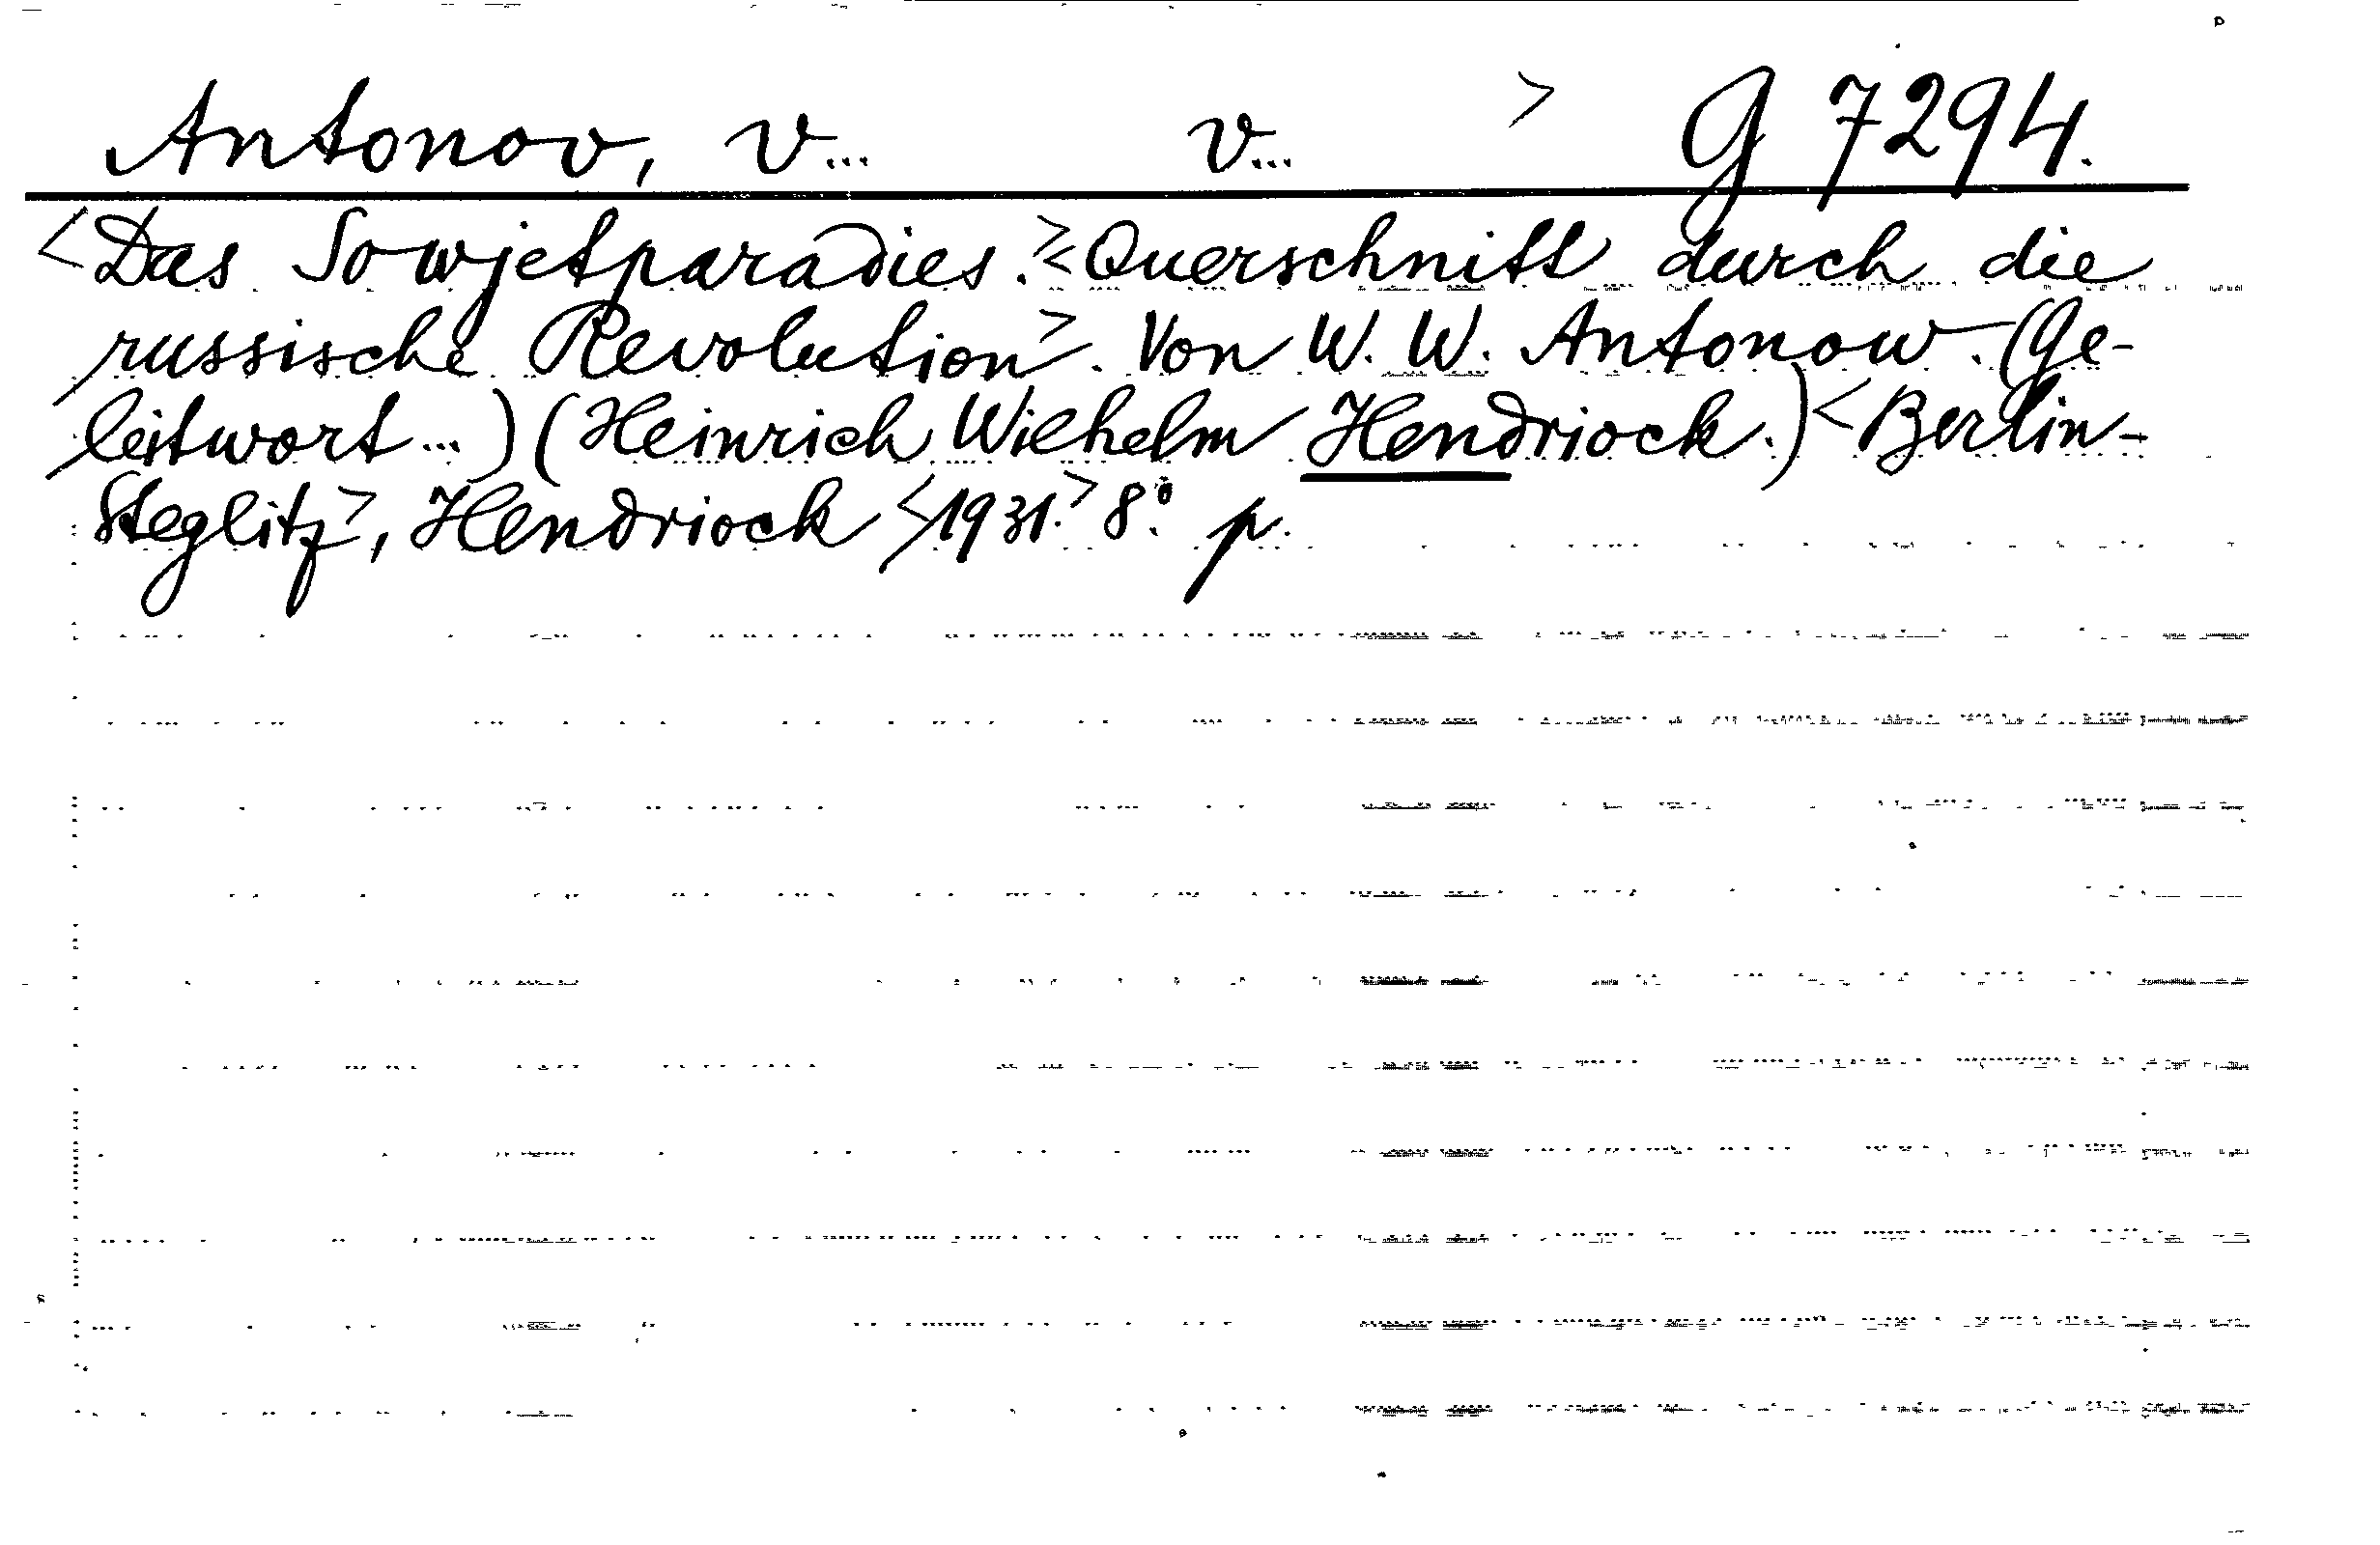 Antonov, V... V... > G 7294.
<Das Sowjetparadies.><Querschnitt durch die
russische Revolution>. Von W. W. Antonow. (Ge-
leitwort...) (Heinrich Wilhelm Hendriock.) <Berlin-
Steglitz>, Hendriock <1931.> 8°. p.